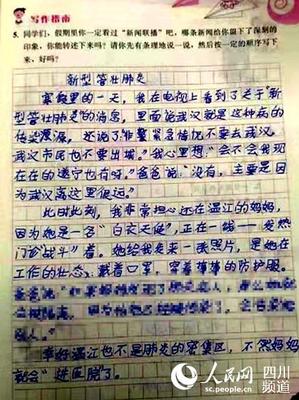 写作指南
5. 同学们，假期里你一定看过“新闻联播”吧，哪条新闻给你留下了深刻的
印象，你能转述下来吗？请你先有条理地说一说，然后按一定的顺序写下
来，好吗？
新型管壮肺炎
寒假里的一天，我在电视上看到了关于新
型管壮肺炎的消息，里面说武汉就是这种病的
传染源，还说了非紧急情况不要去武汉，
武汉市民也不要出城。”我心里想“会不会我现
在在的遂宁也有呀。”爸爸说“没有，主要是因
为武汉离这里很远。”
此时此刻，我非常担心还在温江的妈妈，
因为她是一名“白衣天使”，正在一线—发热
门诊“战斗”着。她给我发来一张照片，是她在
工作的壮态：戴着口罩，穿着
的防护服。
幸好温江也不是肺炎的密集区，不然妈妈
就会“进医院”了。
人民网 四川
sc.people.com.cn